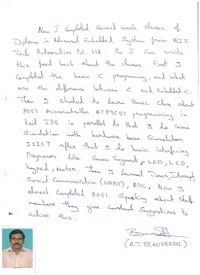 Now I completed second week classes of
Diploma in Advanced Embedded System from NIZ
Tech Automation Pvt. Ltd. So I can write
this feed back about the classes. First I
Completed the basic C programing, and what
are the difference between C and Embedded C.
Then I started to learn Basic class about
8051 microcontroller AT89C51 programming in
keil IDE is parallel do that I do some
Simulation with hardware base Simulation
ISIS7 after that I do basic interfacing
Programes like Seven Segment, LED, LCD,
keypad, motor. Then I learned Timer, Interrupt
Serial Communication (UART), ADC. Now I
almost completed 8051. Speaking about Staff
members they give Constant Suggestions to
achieve this.